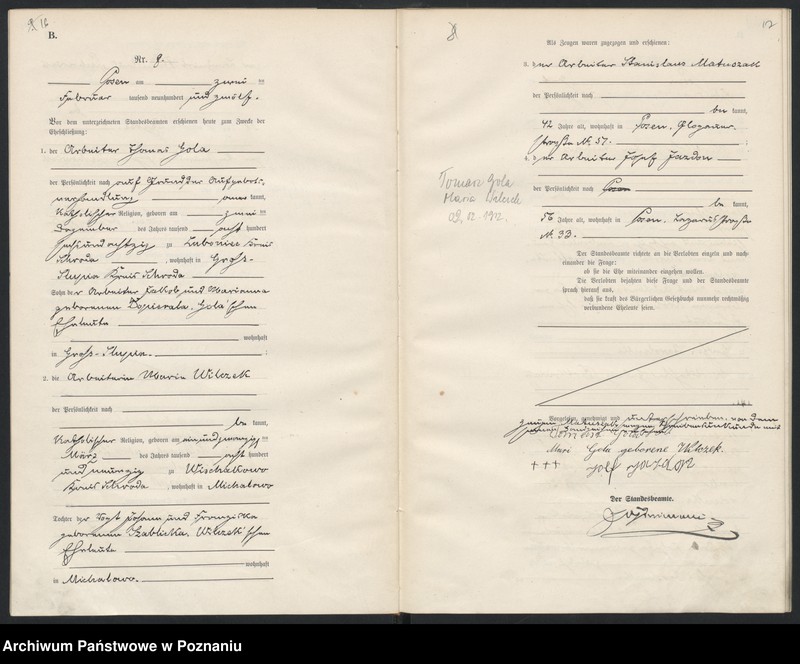 16
B.
Nr. 8.
Posen am zwei ten
Februar tausend neunhundert und zwölf.
Vor dem unterzeichneten Standesbeamten erschienen heute zum Zwecke der
Eheschließung:
1. der Arbeiter Thomas Gola
der Persönlichkeit nach auf Grund der Aufgebots-
verhandlung anerkannt,
katholischer Religion, geboren am zwei ten
Dezember des Jahres tausend acht hundert
sechsundachtzig zu Lubonice Kreis
Schroda, wohnhaft in Groß-
Slupia Kreis Schroda
Sohn der Arbeiter Jakob und Marianna
geborenen Gola'schen
Eheleute
wohnhaft
in Groß-Slupia.
2. die Arbeiterin Maria Wilczek
der Persönlichkeit nach
be kannt,
katholischer Religion, geboren am einundzwanzig ten
März des Jahres tausend acht hundert
und neunzig zu
Kreis Schroda, wohnhaft in Michalowo
Tochter der Vogt Johann und Franziska
geborenen Szablicka, Wilczek'schen
Eheleute
wohnhaft
in Michalowo.
17
Als Zeugen waren zugezogen und erschienen:
3. der Arbeiter Stanislaus Matuszak
der Persönlichkeit nach
be kannt,
42 Jahre alt, wohnhaft in Posen, Glogauer-
straße Nr. 57.
4. der Arbeiter Josef Jazdon
der Persönlichkeit nach
be kannt,
56 Jahre alt, wohnhaft in Posen, Lazarusstraße
Nr. 33.
Tomasz Gola
Maria Wilczek
02.02.1912.
Der Standesbeamte richtete an die Verlobten einzeln und nach-
einander die Frage:
ob sie die Ehe miteinander eingehen wollen.
Die Verlobten bejahten diese Frage und der Standesbeamte
sprach hierauf aus,
daß sie kraft des Bürgerlichen Gesetzbuchs nunmehr rechtmäßig
verbundene Eheleute seien.
Vorgelesen, genehmigt und unterschrieben, von dem
Zeugen Matuszak wegen Schreibensunkunde mit
Gola
Gola geborene Wilczek.
+++ Josef Jazdon
Der Standesbeamte.
Archiwum Państwowe w Poznaniu